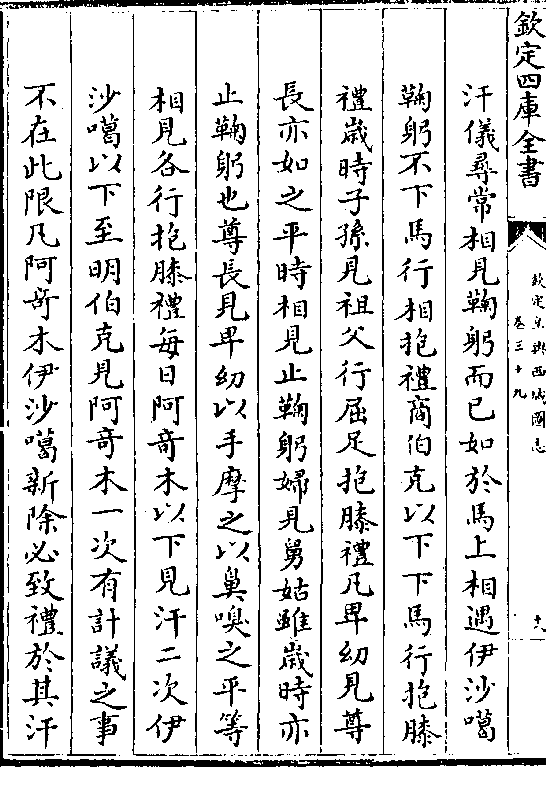 欽定四庫全書
欽定皇輿西域圖志
卷三十九
汗儀尋常相見鞠躬而已如於馬上相遇伊沙噶
鞠躬不下馬行相抱禮商伯克以下下馬行抱膝
禮歲時子孫見祖父行屈足抱膝禮凡卑幼見尊
長亦如之平時相見止鞠躬婦見舅姑雖歲時亦
止鞠躬也尊長見卑幼以手摩之以鼻嗅之平等
相見各行抱膝禮每日阿奇木以下見汗二次伊
沙噶以下至明伯克見阿奇木一次有計議之事
不在此限凡阿奇木伊沙噶新除必致禮於其汗